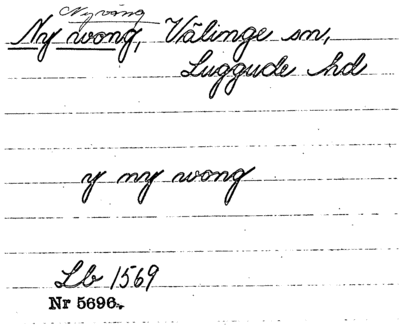 Nyvång
Ny wong, Välinge sn,
Luggude hd
y ny wong
Lb 1569
Nr 5696.